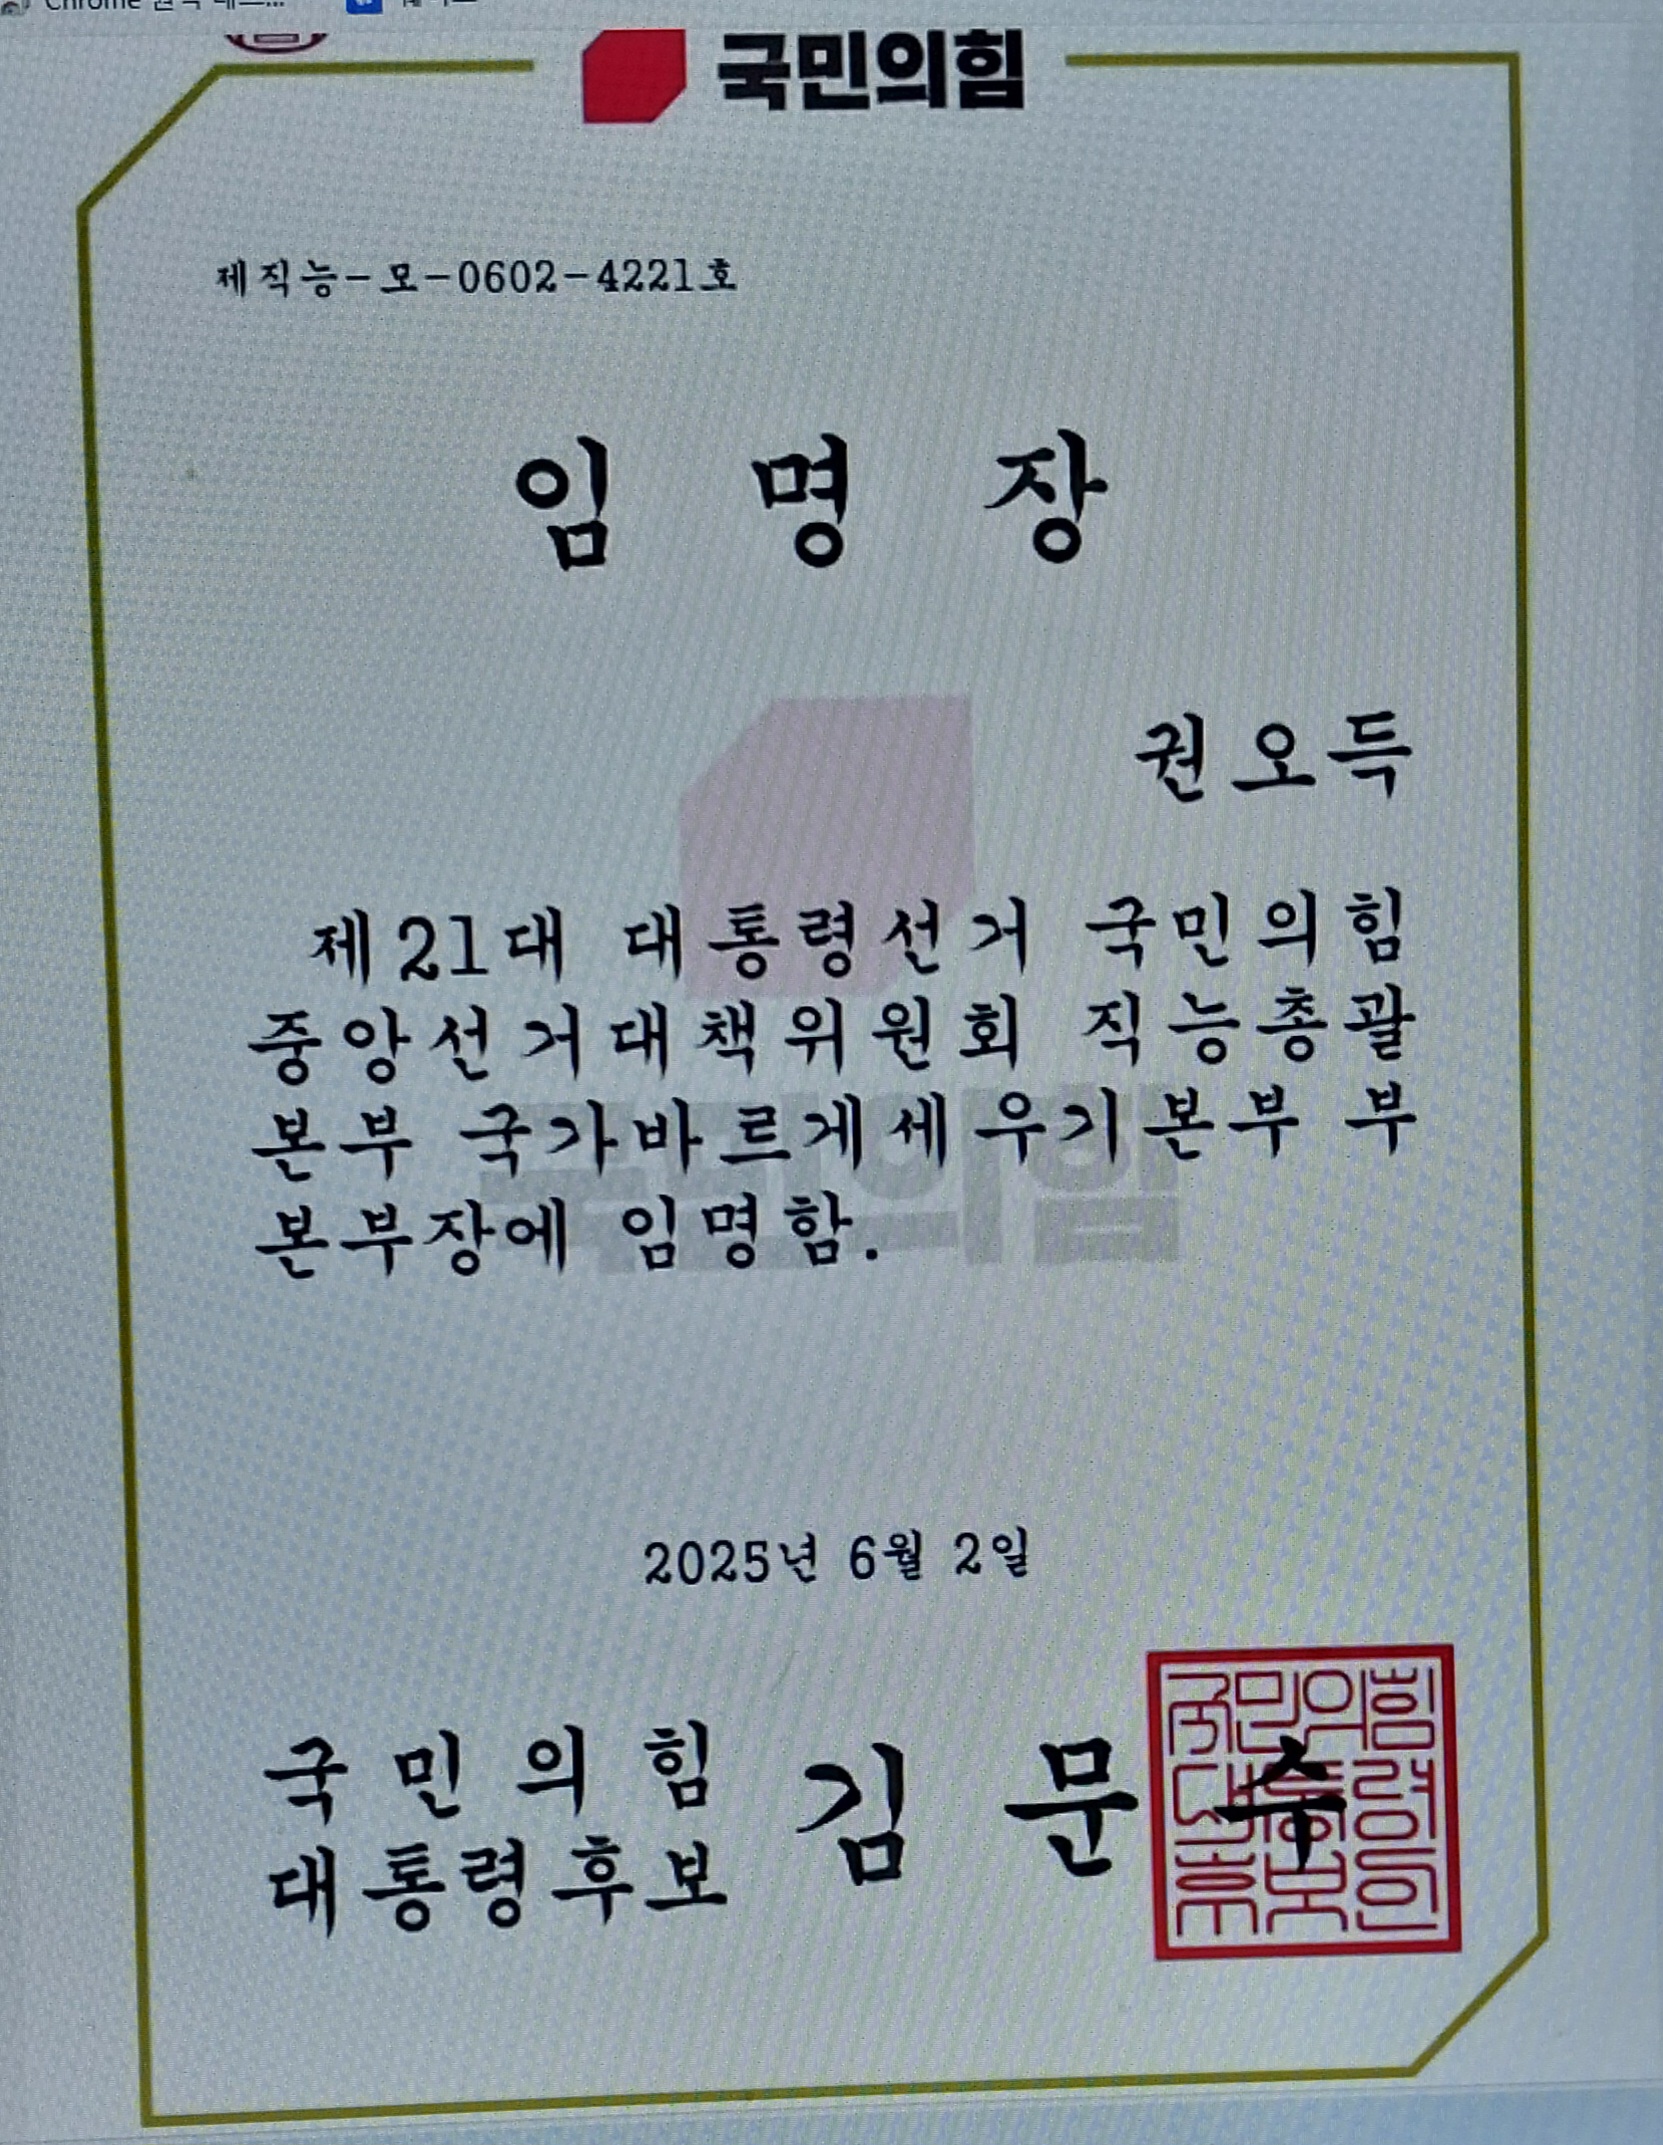 Chrome
국민의힘
제직능-모-0602-4221호
임 명 장
권오득
제21대 대통령선거 국민의힘
중앙선거대책위원회 직능총괄
본부 국가바르게세우기본부 부
본부장에 임명함.
2025년 6월 2일
국민의힘
대통령후보
김 문 수
국민의힘
대통령
후보인